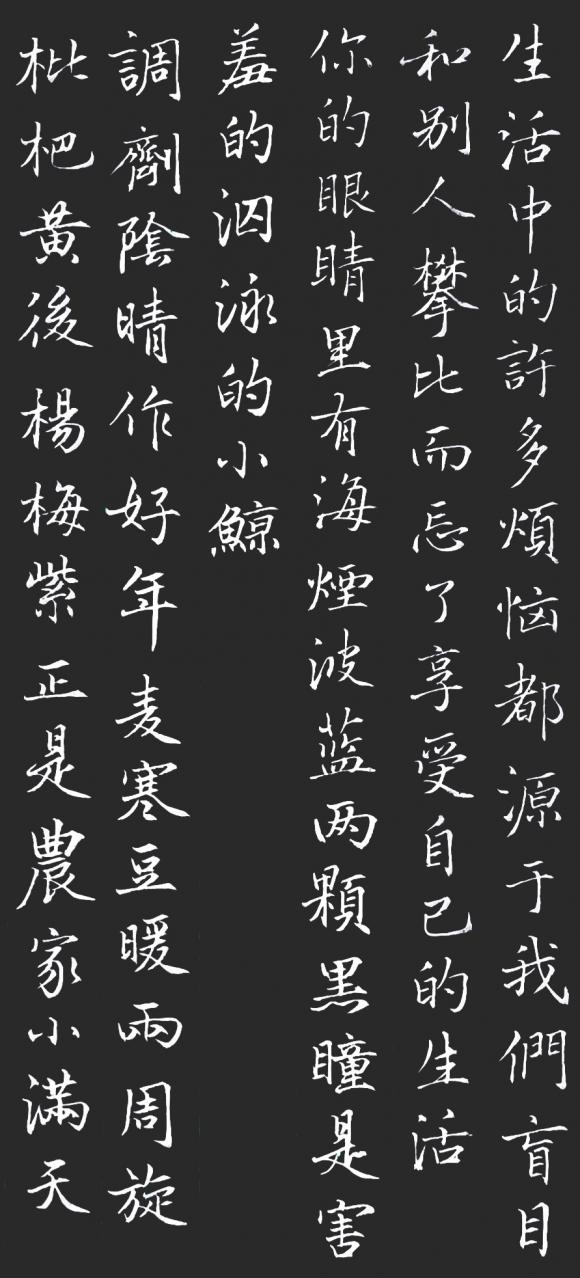 生活中的許多煩恼都源于我們盲目
和别人攀比而忘了享受自己的生活
你的眼睛里有海煙波蓝两顆黑瞳是害
羞的泅泳的小鯨
調劑陰晴作好年麦寒豆暖兩周旋
枇杷黃後楊梅紫正是農家小滿天